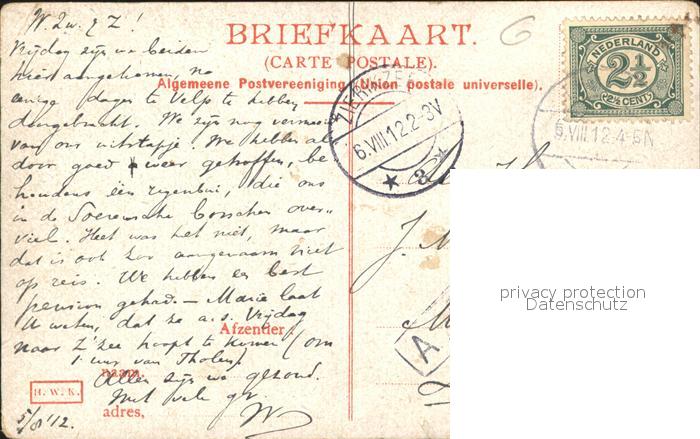 W. Zw. & Z!
Vrijdag zijn we beiden
hier aangekomen, na
eenige dagen te Velp te hebben
doorgebracht. We zijn nog vermoeid
van ons uitstapje. We hebben al
door goed weer getroffen, be
houdens één regenbui, die ons
in de Soerensche bosschen over-
viel. Heet was het niet, maar
dat is ook zoo aangenaam niet
op reis. We hebben een best
pension gehad. — Marie laat
U weten, dat ze a.s. Vrijdag
naar Z'zee hoopt te komen (om
1 uur van Tholen).
Allen zijn we gezond.
Met vele gr.
W
5/8 '12.
BRIEFKAART.
(CARTE POSTALE).
Algemeene Postvereeniging (Union postale universelle).
Afzender
naam,
adres,
H. W. K.
NEDERLAND
2½
2½ CENT
6.VIII.12.2-3V
3
6.VIII.12.4-5N
6
J.
A
privacy protection
Datenschutz